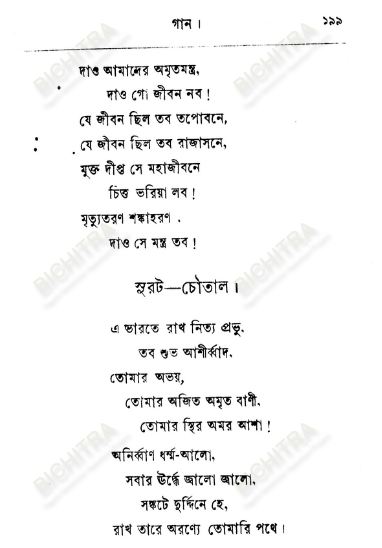 গান ।
১৯৯
দাও আমাদের অমৃতমন্ত্র,
দাও গো জীবন নব !
যে জীবন ছিল তব তপোবনে,
যে জীবন ছিল তব রাজাসনে,
মুক্ত দীপ্ত সে মহাজীবনে
চিত্ত ভরিয়া লব !
মৃত্যুতরণ শঙ্কাহরণ .
দাও সে মন্ত্র তব !
সুরট—চৌতাল ।
এ ভারতে রাখ নিত্য প্রভু.
তব শুভ আশীর্ব্বাদ.
তোমার অভয়,
তোমার অজিত অমৃত বাণী.
তোমার স্থির অমর আশা !
অনির্ব্বাণ ধর্ম্ম-আলো,
সবার ঊর্দ্ধে জালো জালো,
সঙ্কটে দুর্দ্দিনে হে,
রাখ তারে অরণ্যে তোমারি পথে ।
BICHITRA